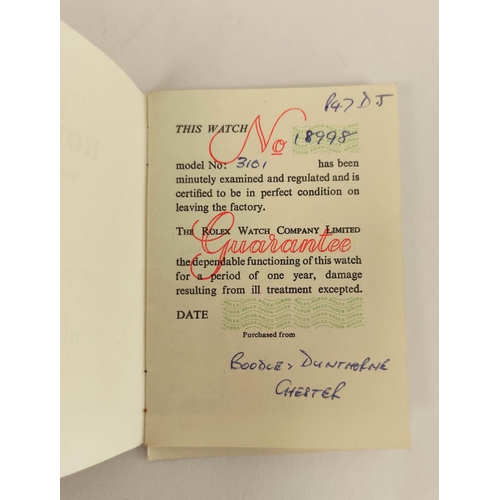 P47 DJ
THIS WATCH No 18998
model No: 3101 has been
minutely examined and regulated and is
certified to be in perfect condition on
leaving the factory.
THE ROLEX WATCH COMPANY LIMITED
Guarantee
the dependable functioning of this watch
for a period of one year, damage
resulting from ill treatment excepted.
DATE
Purchased from
BOODLE & DUNTHORNE
CHESTER